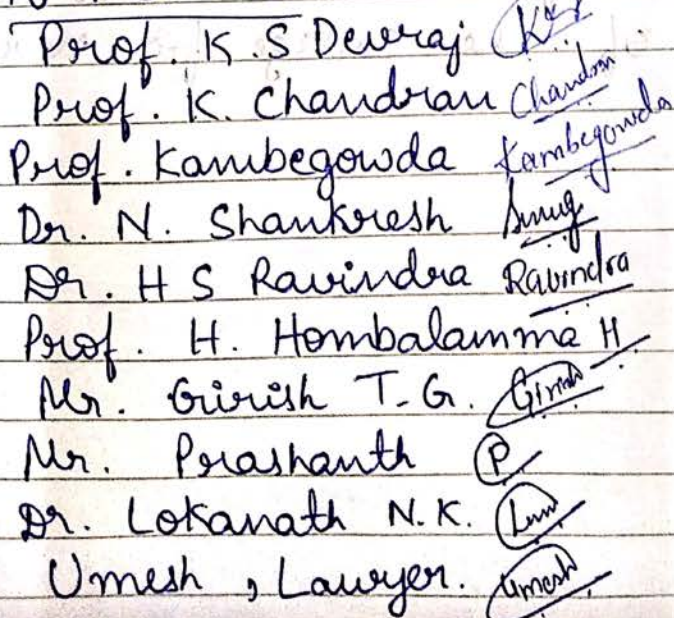 Prof. K.S Devraj
Prof. K. Chandran Chandran
Prof. Kambegowda Kambegowda
Dr. N. Shankresh
Dr. H S Ravindra Ravindra
Prof. H. Hombalamma H
Mr. Girish T.G. Girish
Mr. Prashanth P
Dr. Lokanath N.K.
Umesh, Lawyer. Umesh